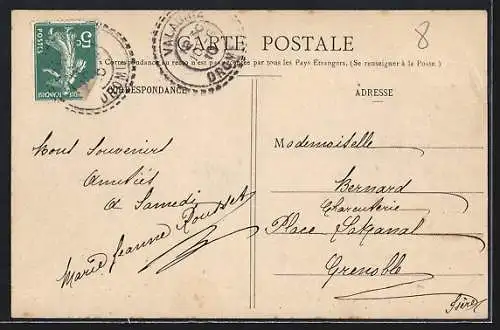 CARTE POSTALE
La Correspondance au recto n'est pas acceptée par tous les Pays Etrangers. (Se renseigner à la Poste.)
CORRESPONDANCE
ADRESSE
8
5c
POSTES
VALAURIE
DROME
10
DROME
Bons Souvenirs
Amitiés
A Samedi
Marie Jeanne Rousset
Mademoiselle
Bernard
Charcuterie
Place
Grenoble
Isère